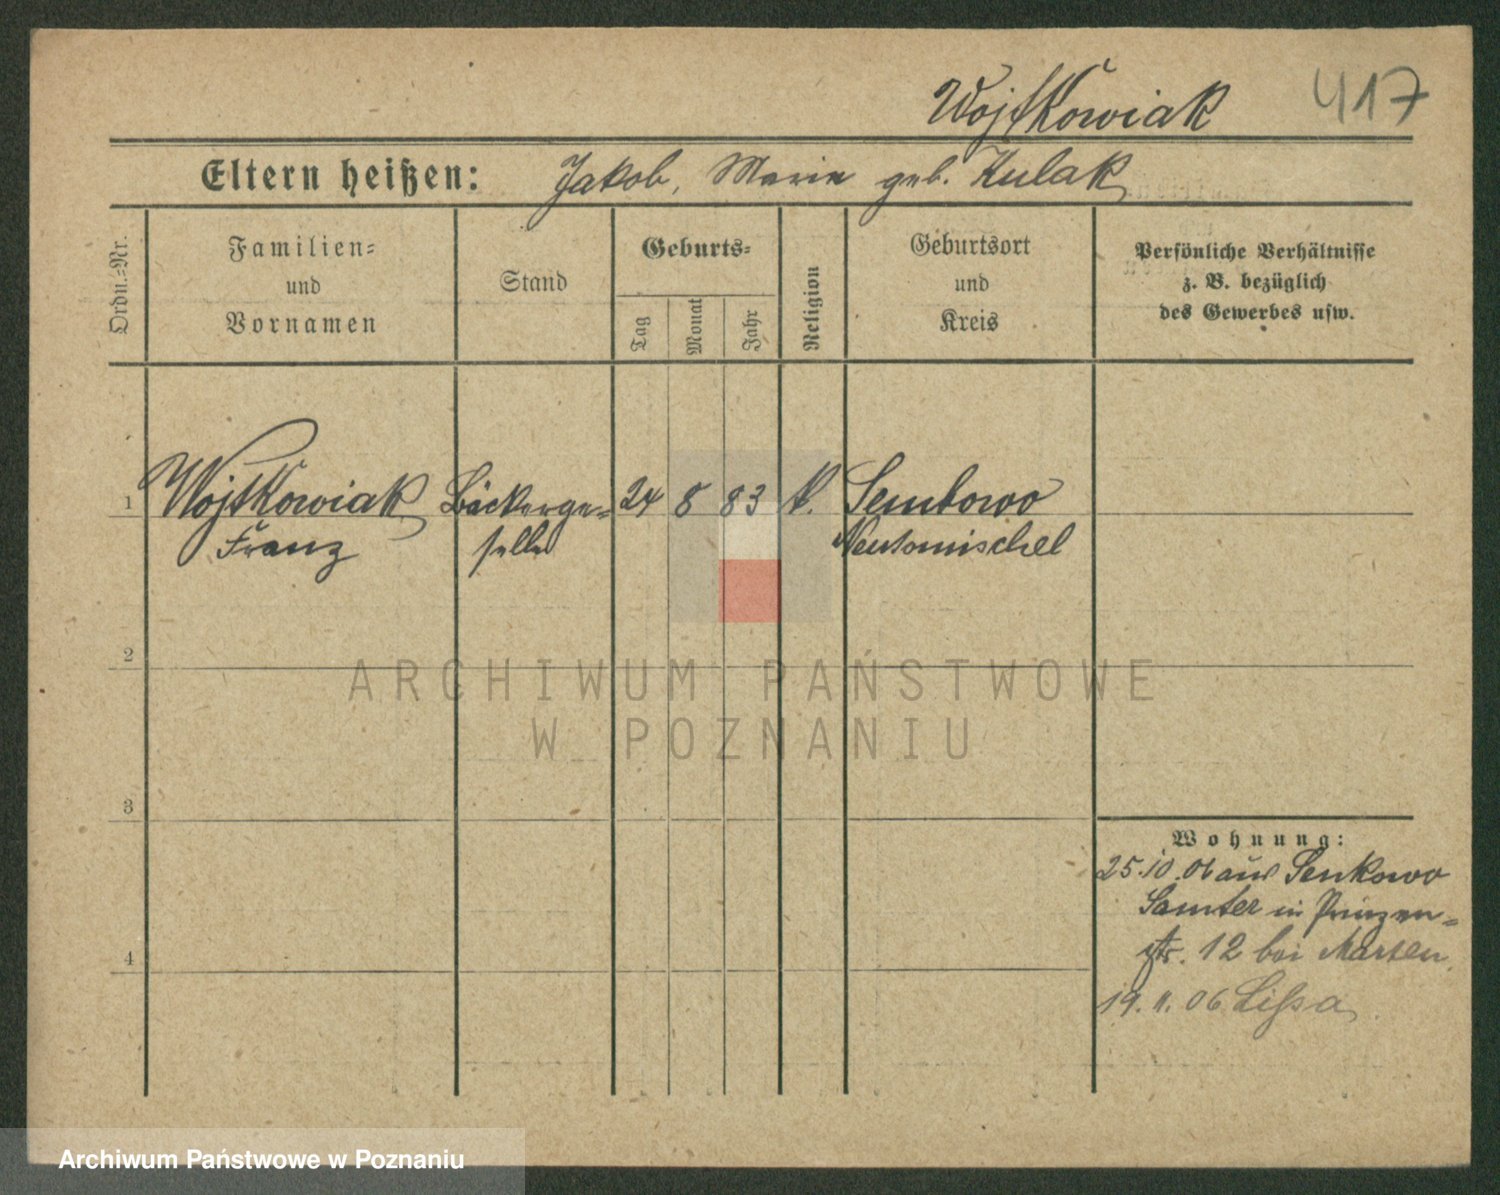 Wojtkowiak 417
Eltern heißen: Jakob, Marie geb. Kulak
Ordn.-Nr.
Familien-
und
Vornamen
Stand
Geburts-
Tag
Monat
Jahr
Religion
Geburtsort
und
Kreis
Persönliche Verhältnisse
z. B. bezüglich
des Gewerbes usw.
1 Wojtkowiak Bäckerge- 24 8 83 k. Sembowo
Franz selle Neutomischel
2
ARCHIWUM PAŃSTWOWE
W POZNANIU
3
Wohnung:
25.10.06 aus Senkowo
Samter in Prinzen-
str. 12 bei Marten
4
19.11.06 Lissa
Archiwum Państwowe w Poznaniu